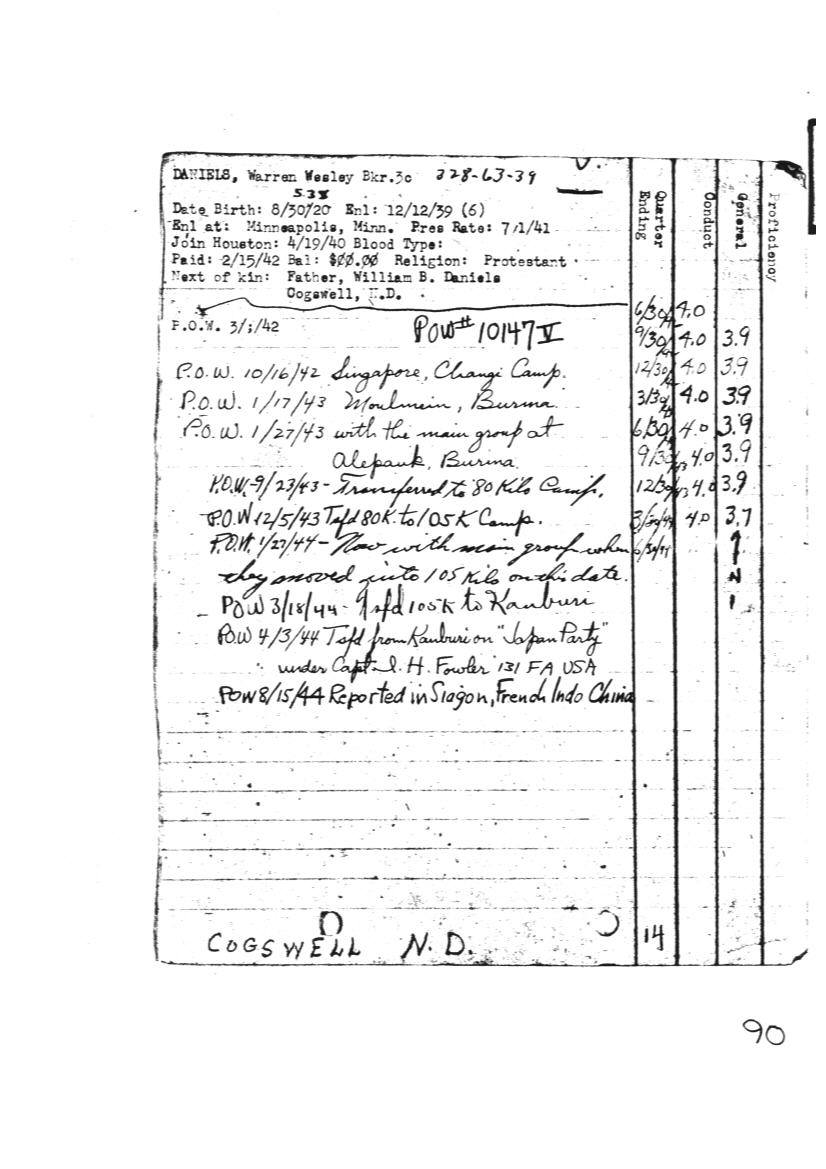 DANIELS, Warren Wesley Bkr.3c 328-63-39
538
Date Birth: 8/30/20 Enl: 12/12/39 (6)
Enl at: Minneapolis, Minn. Pres Rate: 7/1/41
Join Houston: 4/19/40 Blood Type:
Paid: 2/15/42 Bal: $00.00 Religion: Protestant
Next of kin: Father, William B. Daniels
Cogswell, N.D.
P.O.W. 3/1/42 POW# 10147 V
P.O.W. 10/16/42 Singapore, Changi Camp.
P.O.W. 1/17/43 Moulmein, Burma
P.O.W. 1/27/43 with the main group at
Alepauk, Burma
P.O.W. 9/23/43 - Transferred to 80 Kilo Camp.
P.O.W 12/5/43 Tsfd 80K to 105K Camp.
P.O.W. 1/27/44 - Now with main group when
they moved into 105 Kilo on this date.
POW 3/18/44 - Tsfd 105K to Kanburi
POW 4/3/44 Tsfd from Kanburi on "Japan Party"
under Capt. I. H. Fowler 131 FA, USA
POW 8/15/44 Reported in Siagon, French Indo China
COGSWELL N. D.
Quarter Ending Conduct General Proficiency
6/30 4.0
9/30 4.0 3.9
12/30 4.0 3.9
3/30 4.0 3.9
6/30 4.0 3.9
9/30/43 4.0 3.9
12/30/43 4.0 3.9
3/30/44 4.0 3.7
6/30/44
14
90